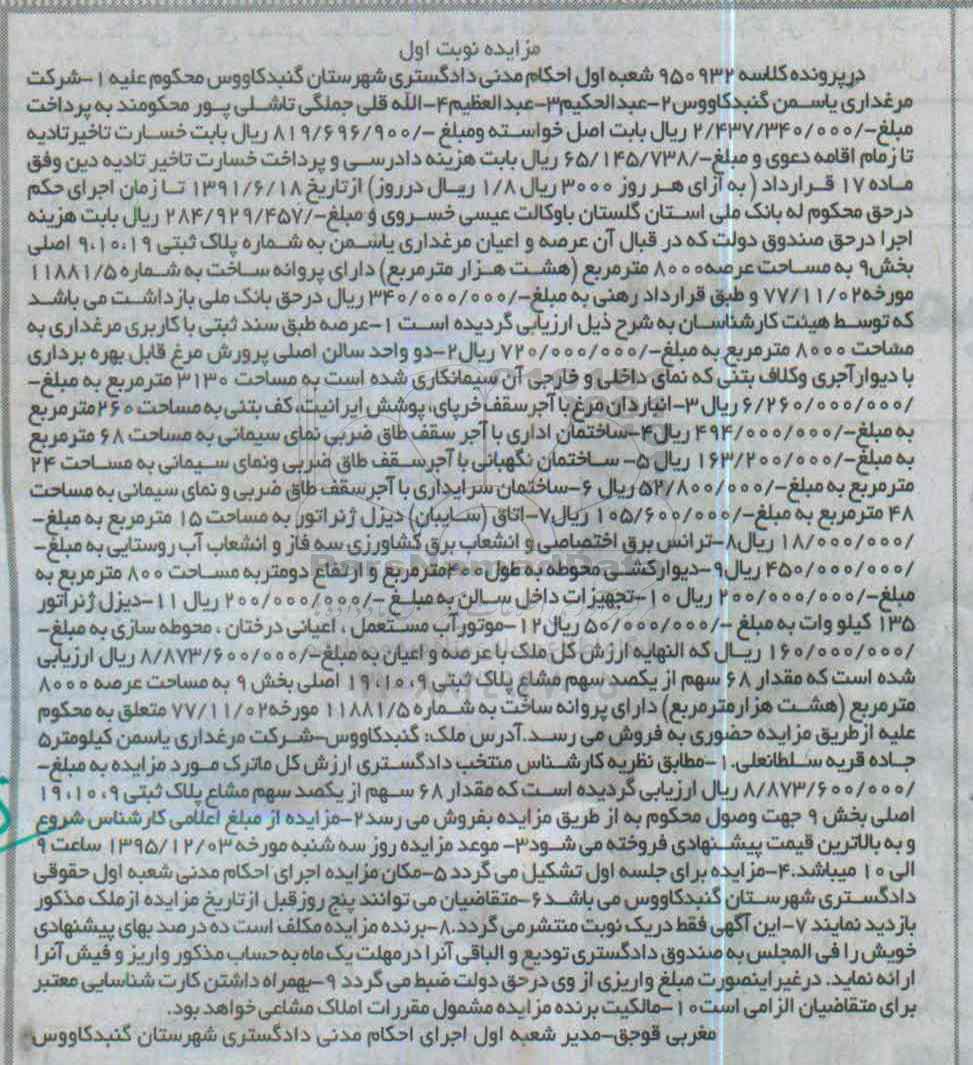 مزایده نوبت اول
درپرونده کلاسه ۹۵۰۹۳۲ شعبه اول احکام مدنی دادگستری شهرستان گنبدکاووس محکوم علیه ۱-شرکت
مرغداری یاسمن گنبدکاووس۲-عبدالحکیم۳-عبدالعظیم۴-الله قلی جملگی تاشلی پور محکومند به پرداخت
مبلغ-/۲/۴۳۷/۳۴۰/۰۰۰ ریال بابت اصل خواسته ومبلغ -/۸۱۹/۶۹۶/۹۰۰ ریال بابت خسارت تاخیرتادیه
تا زمام اقامه دعوی و مبلغ-/۶۵/۱۴۵/۷۳۸ ریال بابت هزینه دادرسی و پرداخت خسارت تاخیر تادیه دین وفق
ماده ۱۷ قرارداد ( به آزای هر روز ۳۰۰۰ ریال ۱/۸ ریال درروز) ازتاریخ ۱۳۹۱/۶/۱۸ تا زمان اجرای حکم
درحق محکوم له بانک ملی استان گلستان باوکالت عیسی خسروی و مبلغ-/۲۸۴/۹۲۹/۴۵۷ ریال بابت هزینه
اجرا درحق صندوق دولت که در قبال آن عرصه و اعیان مرغداری یاسمن به شماره پلاک ثبتی ۹،۱۰،۱۹ اصلی
بخش۹ به مساحت عرصه۸۰۰۰ مترمربع (هشت هزار مترمربع) دارای پروانه ساخت به شماره ۱۱۸۸۱/۵
مورخه۷۷/۱۱/۰۲ و طبق قرارداد رهنی به مبلغ-/۳۴۰/۰۰۰/۰۰۰ ریال درحق بانک ملی بازداشت می باشد
که توسط هیئت کارشناسان به شرح ذیل ارزیابی گردیده است ۱-عرصه طبق سند ثبتی با کاربری مرغداری به
مشاحت ۸۰۰۰ مترمربع به مبلغ-/۷۲۰/۰۰۰/۰۰۰ ریال۲-دو واحد سالن اصلی پرورش مرغ قابل بهره برداری
با دیوارآجری وکلاف بتنی که نمای داخلی و خارجی آن سیمانکاری شده است به مساحت ۳۱۳۰ مترمربع به مبلغ-
/۶/۲۶۰/۰۰۰/۰۰۰ ریال ۳-انباردان مرغ با آجرسقف خرپای، پوشش ایرانیت، کف بتنی به مساحت ۲۶۰مترمربع
به مبلغ-/۴۹۴/۰۰۰/۰۰۰ ریال۴-ساختمان اداری با آجر سقف طاق ضربی نمای سیمانی به مساحت ۶۸ مترمربع
به مبلغ-/۱۶۳/۲۰۰/۰۰۰ ریال ۵- ساختمان نگهبانی با آجرسقف طاق ضربی ونمای سیمانی به مساحت ۲۴
مترمربع به مبلغ-/۵۲/۸۰۰/۰۰۰ ریال ۶-ساختمان سرایداری با آجرسقف طاق ضربی و نمای سیمانی به مساحت
۴۸ مترمربع به مبلغ-/۱۰۵/۶۰۰/۰۰۰ ریال۷-اتاق (سایبان) دیزل ژنراتور به مساحت ۱۵ مترمربع به مبلغ-
/۱۸/۰۰۰/۰۰۰ ریال۸-ترانس برق اختصاصی و انشعاب برق کشاورزی سه فاز و انشعاب آب روستایی به مبلغ-
/۴۵۰/۰۰۰/۰۰۰ ریال۹-دیوارکشی محوطه به طول ۴۰۰مترمربع و ارتفاع دومتر به مساحت ۸۰۰ مترمربع به
مبلغ-/۲۰۰/۰۰۰/۰۰۰ ریال ۱۰-تجهیزات داخل سالن به مبلغ -/۲۰۰/۰۰۰/۰۰۰ ریال ۱۱-دیزل ژنراتور
۱۳۵ کیلو وات به مبلغ -/۵۰/۰۰۰/۰۰۰ ریال۱۲-موتورآب مستعمل ، اعیانی درختان ، محوطه سازی به مبلغ-
/۱۶۰/۰۰۰/۰۰۰ ریال که النهایه ارزش کل ملک با عرصه و اعیان به مبلغ-/۸/۸۷۳/۶۰۰/۰۰۰ ریال ارزیابی
شده است که مقدار ۶۸ سهم از یکصد سهم مشاع پلاک ثبتی ۹،۱۰،۱۹ اصلی بخش ۹ به مساحت عرصه ۸۰۰۰
مترمربع (هشت هزارمترمربع) دارای پروانه ساخت به شماره ۱۱۸۸۱/۵ مورخه۷۷/۱۱/۰۲ متعلق به محکوم
علیه ازطریق مزایده حضوری به فروش می رسد.آدرس ملک: گنبدکاووس-شرکت مرغداری یاسمن کیلومتر۵
جاده قریه سلطانعلی.۱-مطابق نظریه کارشناس منتخب دادگستری ارزش کل ماترک مورد مزایده به مبلغ-
/۸/۸۷۳/۶۰۰/۰۰۰ ریال ارزیابی گردیده است که مقدار ۶۸ سهم از یکصد سهم مشاع پلاک ثبتی ۹،۱۰،۱۹
اصلی بخش ۹ جهت وصول محکوم به از طریق مزایده بفروش می رسد۲-مزایده از مبلغ اعلامی کارشناس شروع
و به بالاترین قیمت پیشنهادی فروخته می شود۳- موعد مزایده روز سه شنبه مورخه ۱۳۹۵/۱۲/۰۳ ساعت ۹
الی ۱۰ میباشد.۴-مزایده برای جلسه اول تشکیل می گردد ۵-مکان مزایده اجرای احکام مدنی شعبه اول حقوقی
دادگستری شهرستان گنبدکاووس می باشد۶-متقاضیان می توانند پنج روزقبل ازتاریخ مزایده ازملک مذکور
بازدید نمایند ۷-این آگهی فقط دریک نوبت منتشرمی گردد.۸-برنده مزایده مکلف است ده درصد بهای پیشنهادی
خویش را فی المجلس به صندوق دادگستری تودیع و الباقی آنرا درمهلت یک ماه به حساب مذکور واریز و فیش آنرا
ارائه نماید. درغیراینصورت مبلغ واریزی از وی درحق دولت ضبط می گردد ۹-بهمراه داشتن کارت شناسایی معتبر
برای متقاضیان الزامی است۱۰-مالکیت برنده مزایده مشمول مقررات املاک مشاعی خواهد بود.
مغربی قوجق-مدیر شعبه اول اجرای احکام مدنی دادگستری شهرستان گنبدکاووس